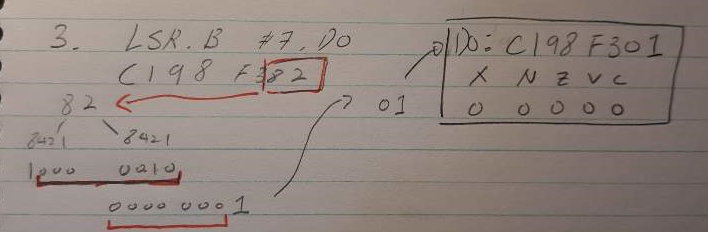 3. LSR.B #7, D0
C198 F382
82
8421 8421
1000 0010
0000 0001
01
D0: C198F301
X N Z V C
0 0 0 0 0